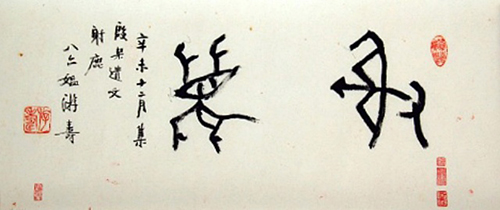 射鹿
辛未十二月集
殷栔遺文
射鹿
八六媪游壽